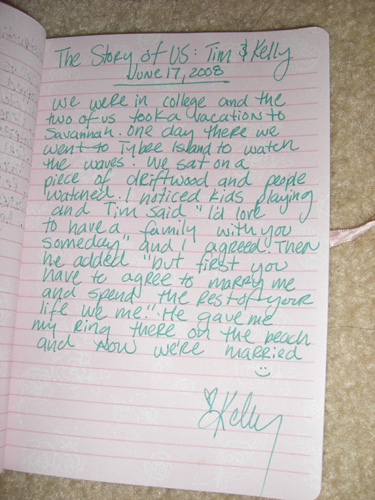 The Story of US: Tim & Kelly
June 17, 2008
We were in college and the
two of us took a vacation to
Savannah. One day there we
went to Tybee Island to watch
the waves. We sat on a
piece of driftwood and people
watched. I noticed kids playing
and Tim said "I'd love
to have a family with you
someday" and I agreed. Then
he added "but first you
have to agree to marry me
and spend the rest of your
life w/ me." He gave me
my ring there on the beach
and now we're married
Kelly